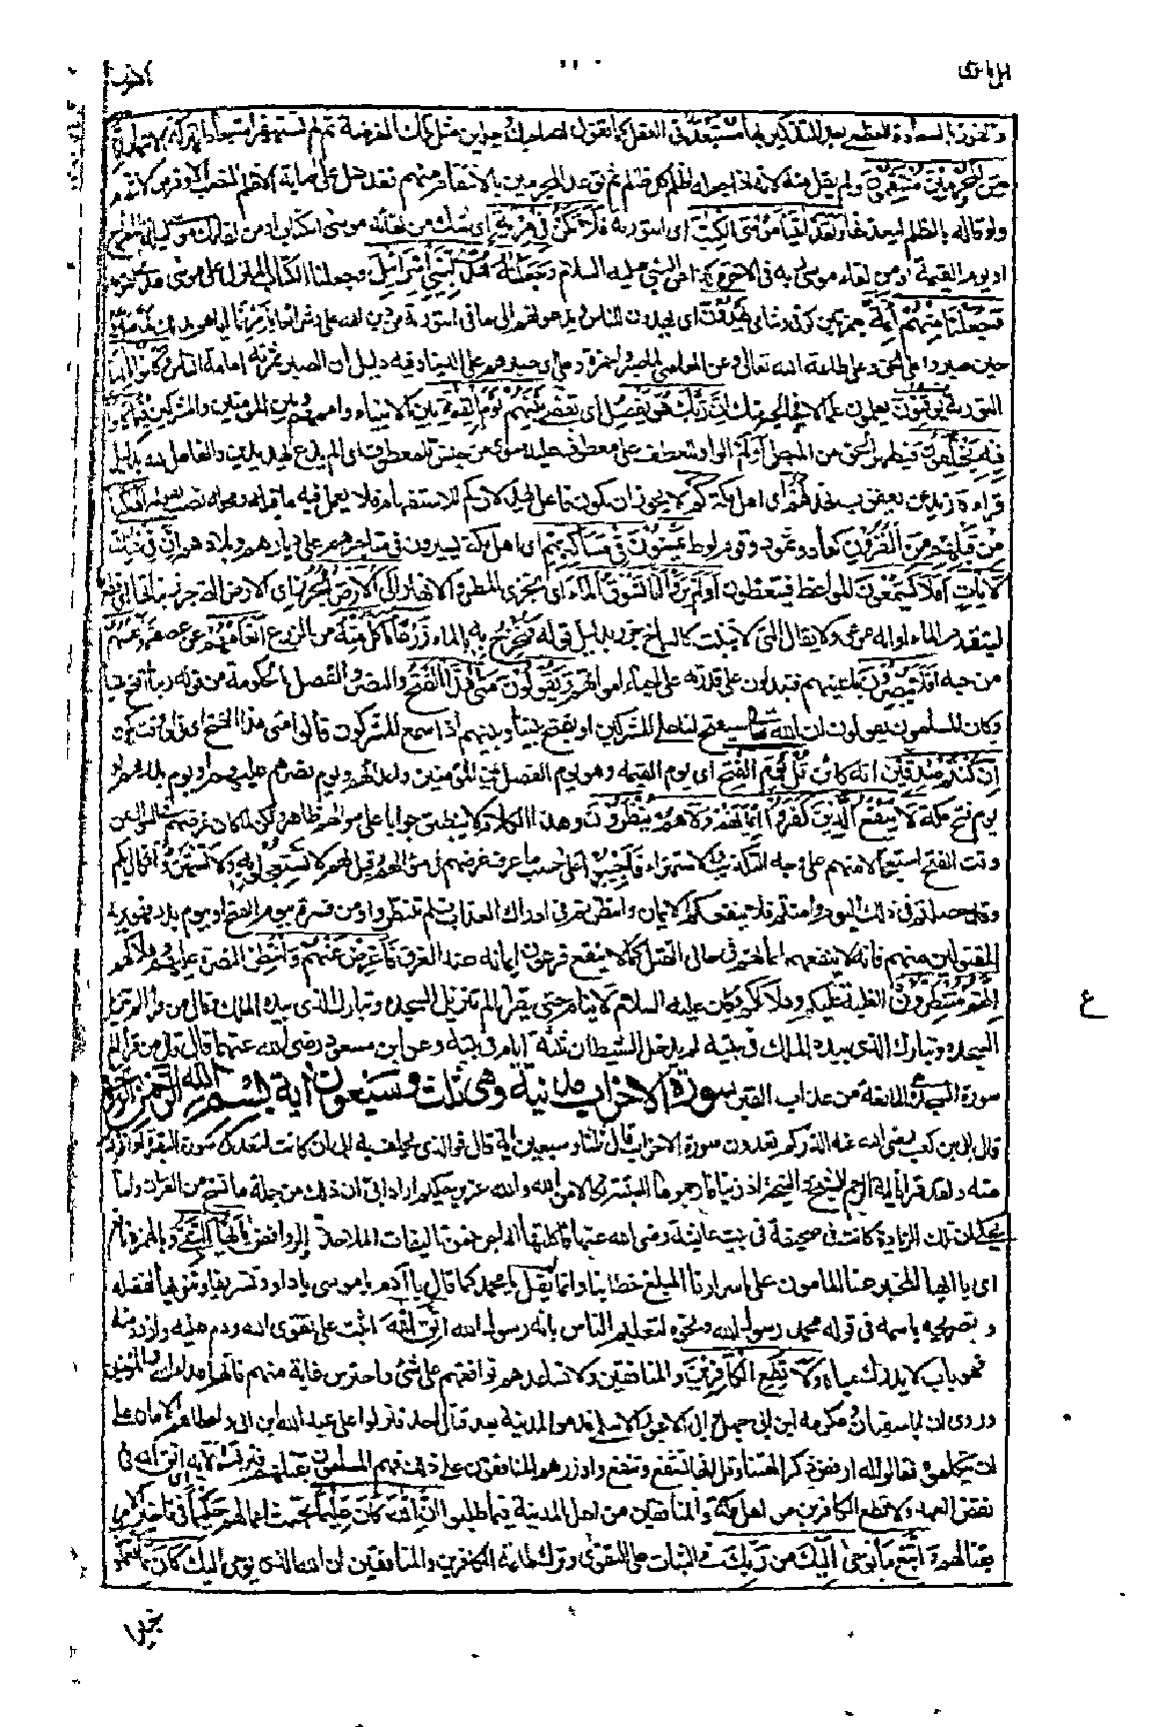 والفوز بالسعادة العظمى بعد التذكير بها مستبعد فى العقل كما تقول لصاحبك وجدت مثل تلك الفرصة ثم لم تنتهزها استبعادا لتركه الانتهاز انا
من المجرمين منتقمون ولم يقل منه لانه اذا جعله اظلم كل ظالم ثم توعد المجرمين بالانتقام منهم فقد دل على اصابة الاظلم النصيب الاوفر من الانتقام
ولو قاله بالضمير لم يفد هذه ولقد اتينا موسى الكتب اى التورىة فلا تكن فى مرية اى شك من لقائه موسى الكتاب او من لقائك موسى ليلة المعراج
او يوم القيمة او من لقاء موسى ربه فى الاخرة كذا عن النبى عليه السلام وجعلناه هدى لبنى اسرائيل وجعلنا الكتاب المنزل على موسى هدى لقومه
وجعلنا منهم ائمة بهمزتين كوفى وشامى يهدون اى يهدون الناس ويدعونهم الى ما فى التورىة من دين الله وشرائعه بامرنا اياهم بذلك لما صبروا
حين صبروا على الحق وعلى طاعة الله تعالى وعن المعاصى لما صبروا حمزة وعلى اى لصبرهم عن الدنيا وفيه دليل ان الصبر ثمرته امامة الناس وكانوا باياتنا
التورىة يوقنون يعلمون علما لا يخالجه شك ان ربك هو يفصل اى يقضى بينهم يوم القيمة بين الانبياء واممهم وبين المؤمنين والمشركين فيما كانوا
فيه يختلفون فيظهر المحق من المبطل او لم الواو للعطف على معطوف عليه منوى من جنس المعطوف اى الم يدع ولم يهد يبين والفاعل الله بدليل
قراءة زيد عن يعقوب نهد لهم اى اهل مكة كم لا يجوز ان يكون فاعل يهد لان كم للاستفهام فلا يعمل فيه ما قبله ومحله نصب بقوله اهلكنا
من قبلهم من القرون كعاد وثمود وقوم لوط يمشون فى مساكنهم اى اهل مكة يسيرون فى متاجرهم على ديارهم وبلادهم ان فى ذلك
لايات افلا يسمعون المواعظ فيتعظون اولم يروا انا نسوق الماء اى نجرى المطر والانهار الى الارض الجرز اى الارض التى جرز نباتها اى قطع اما
لعدم الماء او لانه رعى ولا يقال للتى لا تنبت كالسباخ جرز بدليل قوله فنخرج به بالماء زرعا تاكل منه من الزرع انعامهم من عصفه وانفسهم
من حبه افلا يبصرون باعينهم فيستدلون على قدرته على احياء الموتى ويقولون متى هذا الفتح النصر او الفصل بالحكومة من قوله ربنا افتح بيننا
وكان المسلمون يقولون ان الله سيفتح لنا على المشركين او يفتح بيننا وبينهم فاذا سمع المشركون قالوا متى هذا الفتح اى فى اى وقت يكون
ان كنتم صدقين انه كائن قل يوم الفتح اى يوم القيمة وهو يوم الفصل بين المؤمنين واعدائهم ويوم نصرهم عليهم او يوم بدر او
يوم فتح مكة لا ينفع الذين كفروا ايمانهم ولا هم ينظرون وهذا الكلام لا ينطبق جوابا على سؤالهم ظاهرا ولكن لما كان غرضهم فى السؤال عن
وقت الفتح استعجالا منهم على وجه التكذيب والاستهزاء فاجيبوا على حسب ما عرف من غرضهم فى سؤالهم فقيل لهم لا تستعجلوا به ولا تستهزؤا فكانى بكم
وقد حصلتم فى ذلك اليوم وامنتم فلا ينفعكم الايمان واستنظرتم فى ادراك العذاب فلم تنظروا ومن فسره بيوم الفتح او يوم بدر فهو يريد
المقتولين منهم فانه لا ينفعهم ايمانهم فى حال القتل كما لم ينفع فرعون ايمانه عند الغرق فاعرض عنهم وانتظر النصرة عليهم وهلاكهم
انهم منتظرون الغلبة عليكم وهلاككم وكان عليه السلام لا ينام حتى يقرأ الم تنزيل السجدة وتبارك الذى بيده الملك وقال من قرأ الم تنزيل
السجدة وتبارك الذى بيده الملك فى بيته لم يدخل الشيطان بيته ثلثة ايام وعن ابن مسعود رضى الله عنه قال من قرأ الم
سورة السجدة المانعة من عذاب القبر سورة الاحزاب مدنية وهى ثلث وسبعون اية بسم الله الرحمن الرحيم
قال ابى بن كعب رضى الله عنه لزر كم تعدون سورة الاحزاب قال ثلثا وسبعين اية قال فوالذى يحلف به ابى ان كانت لتعدل سورة البقرة او اطول
منه ولقد قرانا اية الرجم الشيخ والشيخة اذا زنيا فارجموهما البتة نكالا من الله والله عزيز حكيم اراد ابى ان ذلك من جملة ما نسخ من القران واما ما
يحكى ان تلك الزيادة كانت فى صحيفة فى بيت عائشة رضى الله عنها فاكلتها الداجن فمن تاليفات الملاحدة والروافض يايها النبى وبالهمزة نافع
اى يا ايها المخبر عنا المامون على اسرارنا المبلغ خطابنا وانما لم يقل يا محمد كما قال يا ادم يا موسى يا داود تشريفا وتنويها بفضله
وتصريحه باسمه فى قوله محمد رسول الله ونحوه لتعليم الناس بانه رسول الله اتق الله اثبت على تقوى الله ودم عليه وازدد منه
فهو باب لا يدرك مداه ولا تطع الكافرين والمنافقين ولا تساعدهم على شئ واحترس منهم فانهم اعداء الله والمؤمنين
وروى ان ابا سفيان وعكرمة ابن ابى جهل وابا الاعور السلمى قدموا المدينة بعد قتال احد فنزلوا على عبد الله ابن ابى واعطاهم الامان على
ان يكلموه فقالوا له ارفض ذكر الهتنا وقل انها تنفع وتشفع ووازرهم المنافقون على ذلك فهم المسلمون بقتلهم فنزلت الاية اى اتق الله فى
نقض العهد ولا تطع الكافرين من اهل مكة والمنافقين من اهل المدينة فيما طلبوا ان الله كان عليما بخبث اعمالهم حكيما فى تاخير الامر
بقتالهم واتبع ما يوحى اليك من ربك فى الثبات على التقوى وترك طاعة الكافرين والمنافقين ان الله الذى يوحى اليك كان بما تعملون
ع